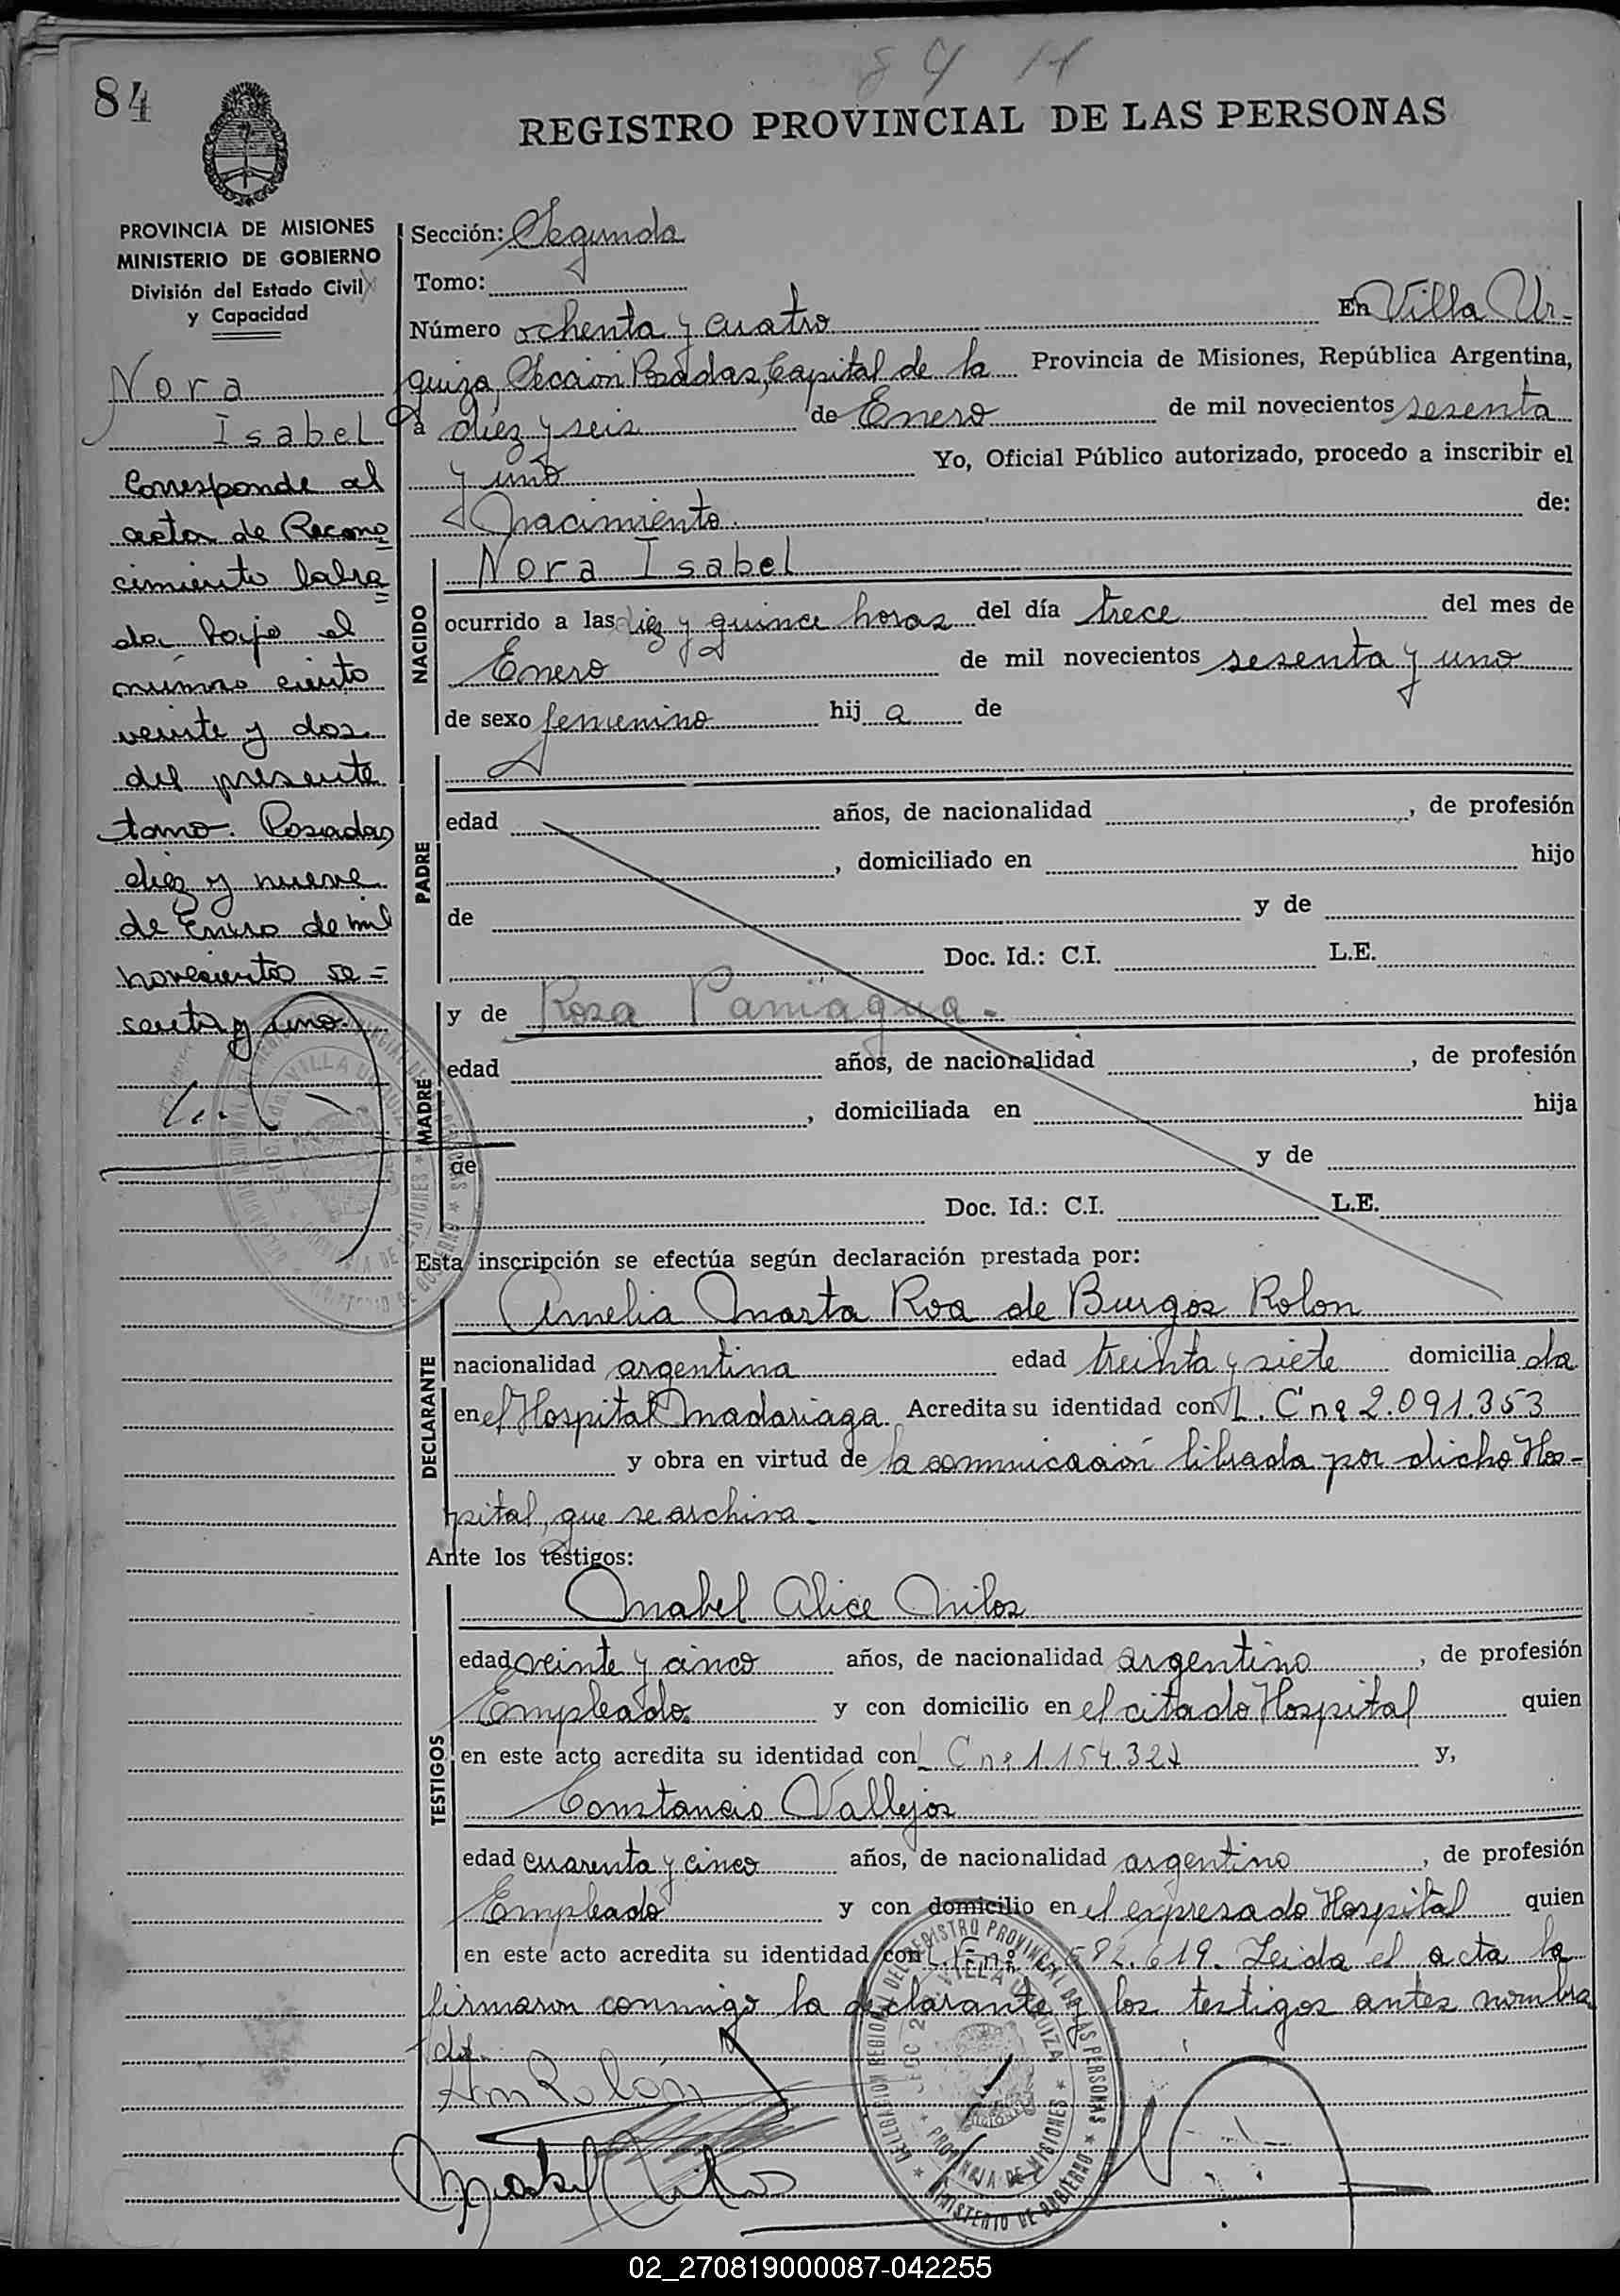 84
84
REGISTRO PROVINCIAL DE LAS PERSONAS
PROVINCIA DE MISIONES
MINISTERIO DE GOBIERNO
División del Estado Civil
y Capacidad
Nora
Isabel
Corresponde al
acta de Recono
cimiento labra
da bajo el
número ciento
veinte y dos
del presente
tomo. Posadas,
diez y nueve
de Enero de mil
novecientos se=
senta y uno.
Sección: Segunda
Tomo:
Número ochenta y cuatro En Villa Ur-
quiza, Sección Posadas, Capital de la Provincia de Misiones, República Argentina,
a diez y seis de Enero de mil novecientos sesenta
y uno Yo, Oficial Público autorizado, procedo a inscribir el
nacimiento. de:
NACIDO
Nora Isabel
ocurrido a las diez y quince horas del día trece del mes de
Enero de mil novecientos sesenta y uno
de sexo femenino hij a de
PADRE
edad años, de nacionalidad , de profesión
, domiciliado en hijo
de y de
Doc. Id.: C.I. L.E.
MADRE
y de Rosa Paniagua.-
edad años, de nacionalidad , de profesión
, domiciliada en hija
de y de
Doc. Id.: C.I. L.E.
Esta inscripción se efectúa según declaración prestada por:
DECLARANTE
Amelia Marta Roa de Burgos Rolon
nacionalidad argentina edad treinta y siete domicilia da
en el Hospital Madariaga. Acredita su identidad con L. C nº 2.091.353
y obra en virtud de la comunicación librada por dicho Hos-
pital, que se archiva.-
Ante los testigos:
TESTIGOS
Mabel Alice Milos
edad veinte y cinco años, de nacionalidad argentino , de profesión
Empleado y con domicilio en el citado Hospital quien
en este acto acredita su identidad con L C nº 1.154.327 y,
Constancio Vallejos
edad cuarenta y cinco años, de nacionalidad argentino , de profesión
Empleado y con domicilio en el expresado Hospital quien
en este acto acredita su identidad con L.E. nº 692.619. Leida el acta la
firmaron conmigo la declarante y los testigos antes nombra
dos.
Am Rolón
Mabel Milos
DELEGACION REGIONAL DEL REGISTRO PROVINCIAL DE LAS PERSONAS
VILLA URQUIZA
PROVINCIA DE MISIONES
MINISTERIO DE GOBIERNO
02_270819000087-042255